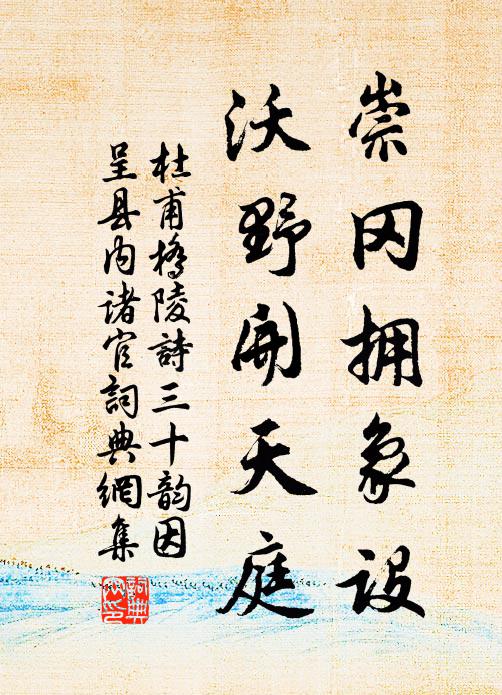 崇冈拥象设
沃野开天庭
杜甫橋陵詩三十韵因
呈县内诸官詞典網集